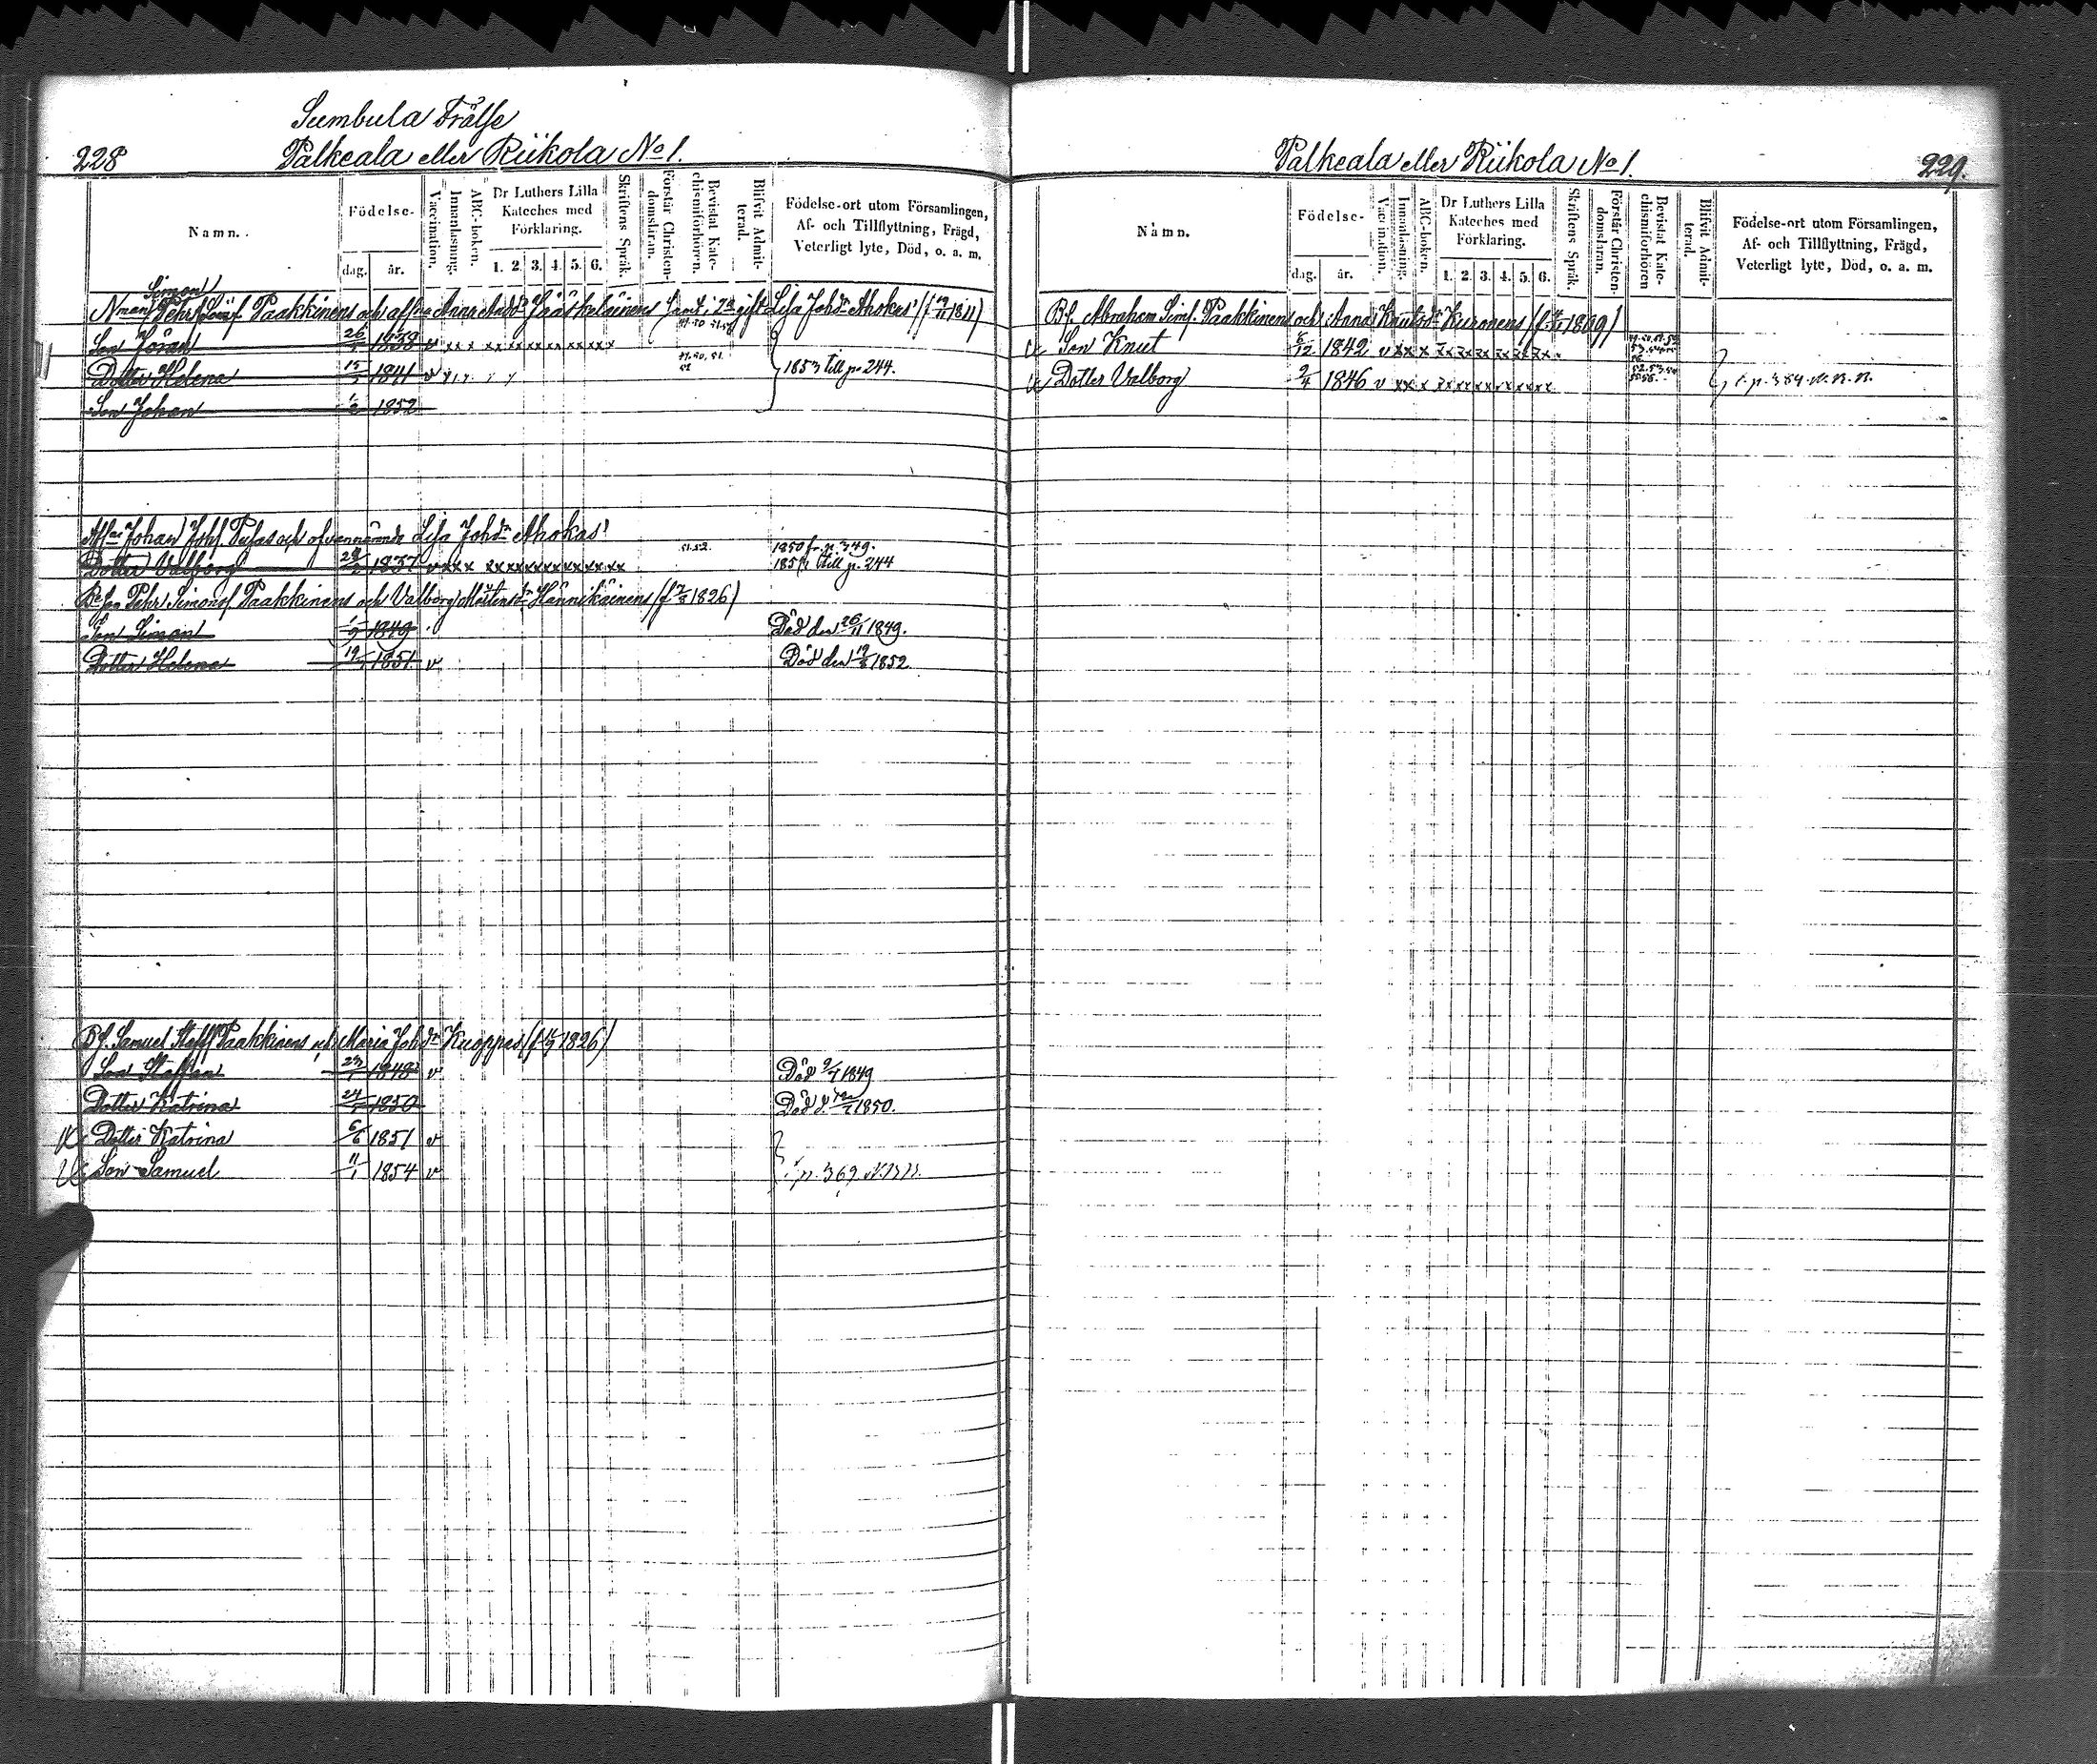 Sumbula Frälse
228 Palkeala eller Riikola No 1.
Namn.
Födelse-
dag. år.
Vaccination.
Innanläsning.
ABC-boken.
Dr Luthers Lilla Kateches med Förklaring.
1. 2. 3. 4. 5. 6.
Skriftens Språk.
Förstår Christendomsläran.
Bevistat Katechismiförhören.
Blifvit Admitterad.
Födelse-ort utom Församlingen,
Af- och Tillflyttning, Frägd,
Veterligt lyte, Död, o. a. m.
Simon
Nman Pehr Paakkinens och Anna Andd:r Jääskeläinens samt i 2:a gift Lisa Johd:r Ahokas' 1811)
Son Jöran 26 1838 v xx x xx xx xx xx xx xx
Dotter Helena 15 1841 v 1853 till p. 244.
Son Johan 1852
Johan Johs. Pusas och ofvannämnde Lisa Johd:r Ahokas'
Dotter Valborg 1837 v xx x xx xx xx xx xx xx xx 51.52. 1850 fr. p. 349.
till p. 244
Pehr Simonss. Paakkinens och Valborg Mårtensd:r Hännikäinens (f 1826)
Son Simon 1/9 1849 Död den 26/11 1849.
Dotter Helena 19 1851 v Död den 19 1852.
Bf. Samuel Staffs Paakkinens och Maria Johd:r Kuoppas (f. 1826)
Son Staffan 23 1848 v Död 1849
Dotter Katrina 24 1850 Död d. 1850.
Dotter Katrina 6/6 1851 v
Son Samuel 11/1 1854 v p. 369 N.B.B.
Palkeala eller Riikola No 1. 229.
Namn.
Födelse-
dag. år.
Vaccination.
Innanläsning.
ABC-boken.
Dr Luthers Lilla Kateches med Förklaring.
1. 2. 3. 4. 5. 6.
Skriftens Språk.
Förstår Christendomsläran.
Bevistat Katechismiförhören
Blifvit Admitterad.
Födelse-ort utom Församlingen,
Af- och Tillflyttning, Frägd,
Veterligt lyte, Död, o. a. m.
Bf. Abraham Sims. Paakkinens och Anna Knutsd:r Kuronens (f. 1809)
Son Knut 6/12 1842 v xx x xx xx xx xx xx xx
Dotter Valborg 2/4 1846 v xx x xx xx xx xx xx xx p. 384 N.B.B.